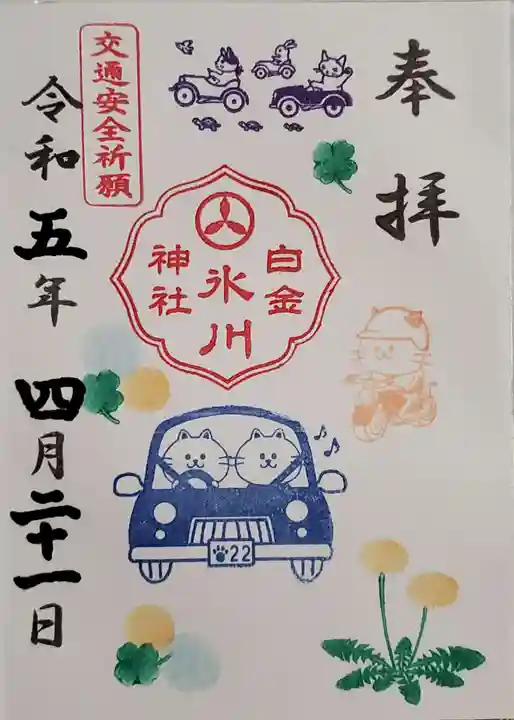 奉拝
交通安全祈願
白金
氷川
神社
令和五年 四月二十一日
22